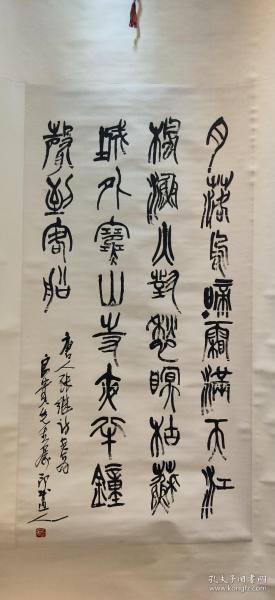 月落烏啼霜滿天江
楓漁火對愁瞑姑蘇
城外寒山寺夜半鐘
聲到客船
唐人張繼詩
先生
道人
孔夫子旧书网